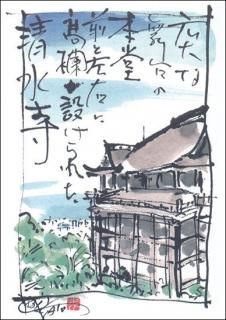 広すぎる
舞台の
本堂
前と左右に
高欄が設けられた
清水寺